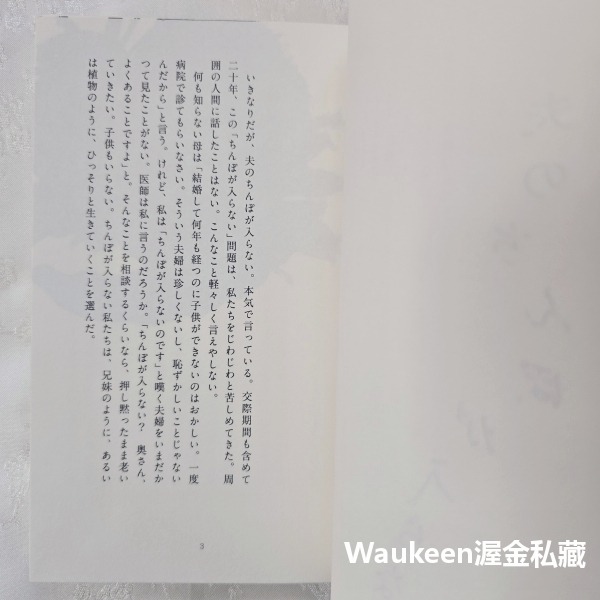 いきなりだが、夫のちんぽが入らない。本気で言っている。交際期間も含めて
二十年、この「ちんぽが入らない」問題は、私たちをじわじわと苦しめてきた。周
囲の人間に話したことはない。こんなこと軽々しく言えやしない。
何も知らない母は「結婚して何年も経つのに子供ができないのはおかしい。一度
病院で診てもらいなさい。そういう夫婦は珍しくないし、恥ずかしいことじゃない
んだから」と言う。けれど、私は「ちんぽが入らないのです」と嘆く夫婦をいまだか
つて見たことがない。医師は私に言うのだろうか。「ちんぽが入らない？　奥さん、
よくあることですよ」と。そんなことを相談するくらいなら、押し黙ったまま老い
ていきたい。子供もいらない。ちんぽが入らない私たちは、兄妹のように、あるい
は植物のように、ひっそりと生きていくことを選んだ。
3
Waukeen渥金私藏